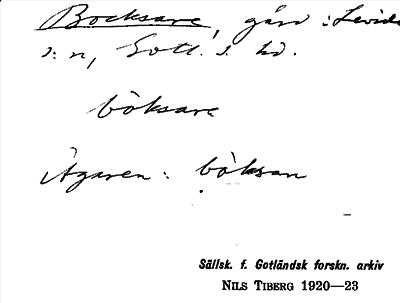 Bocksare, gård i Levide
s:n, Gotl. s. hd.
bòksare
Ägaren: bòksan
Sällsk. f. Gotländsk forskn. arkiv
NILS TIBERG 1920—23